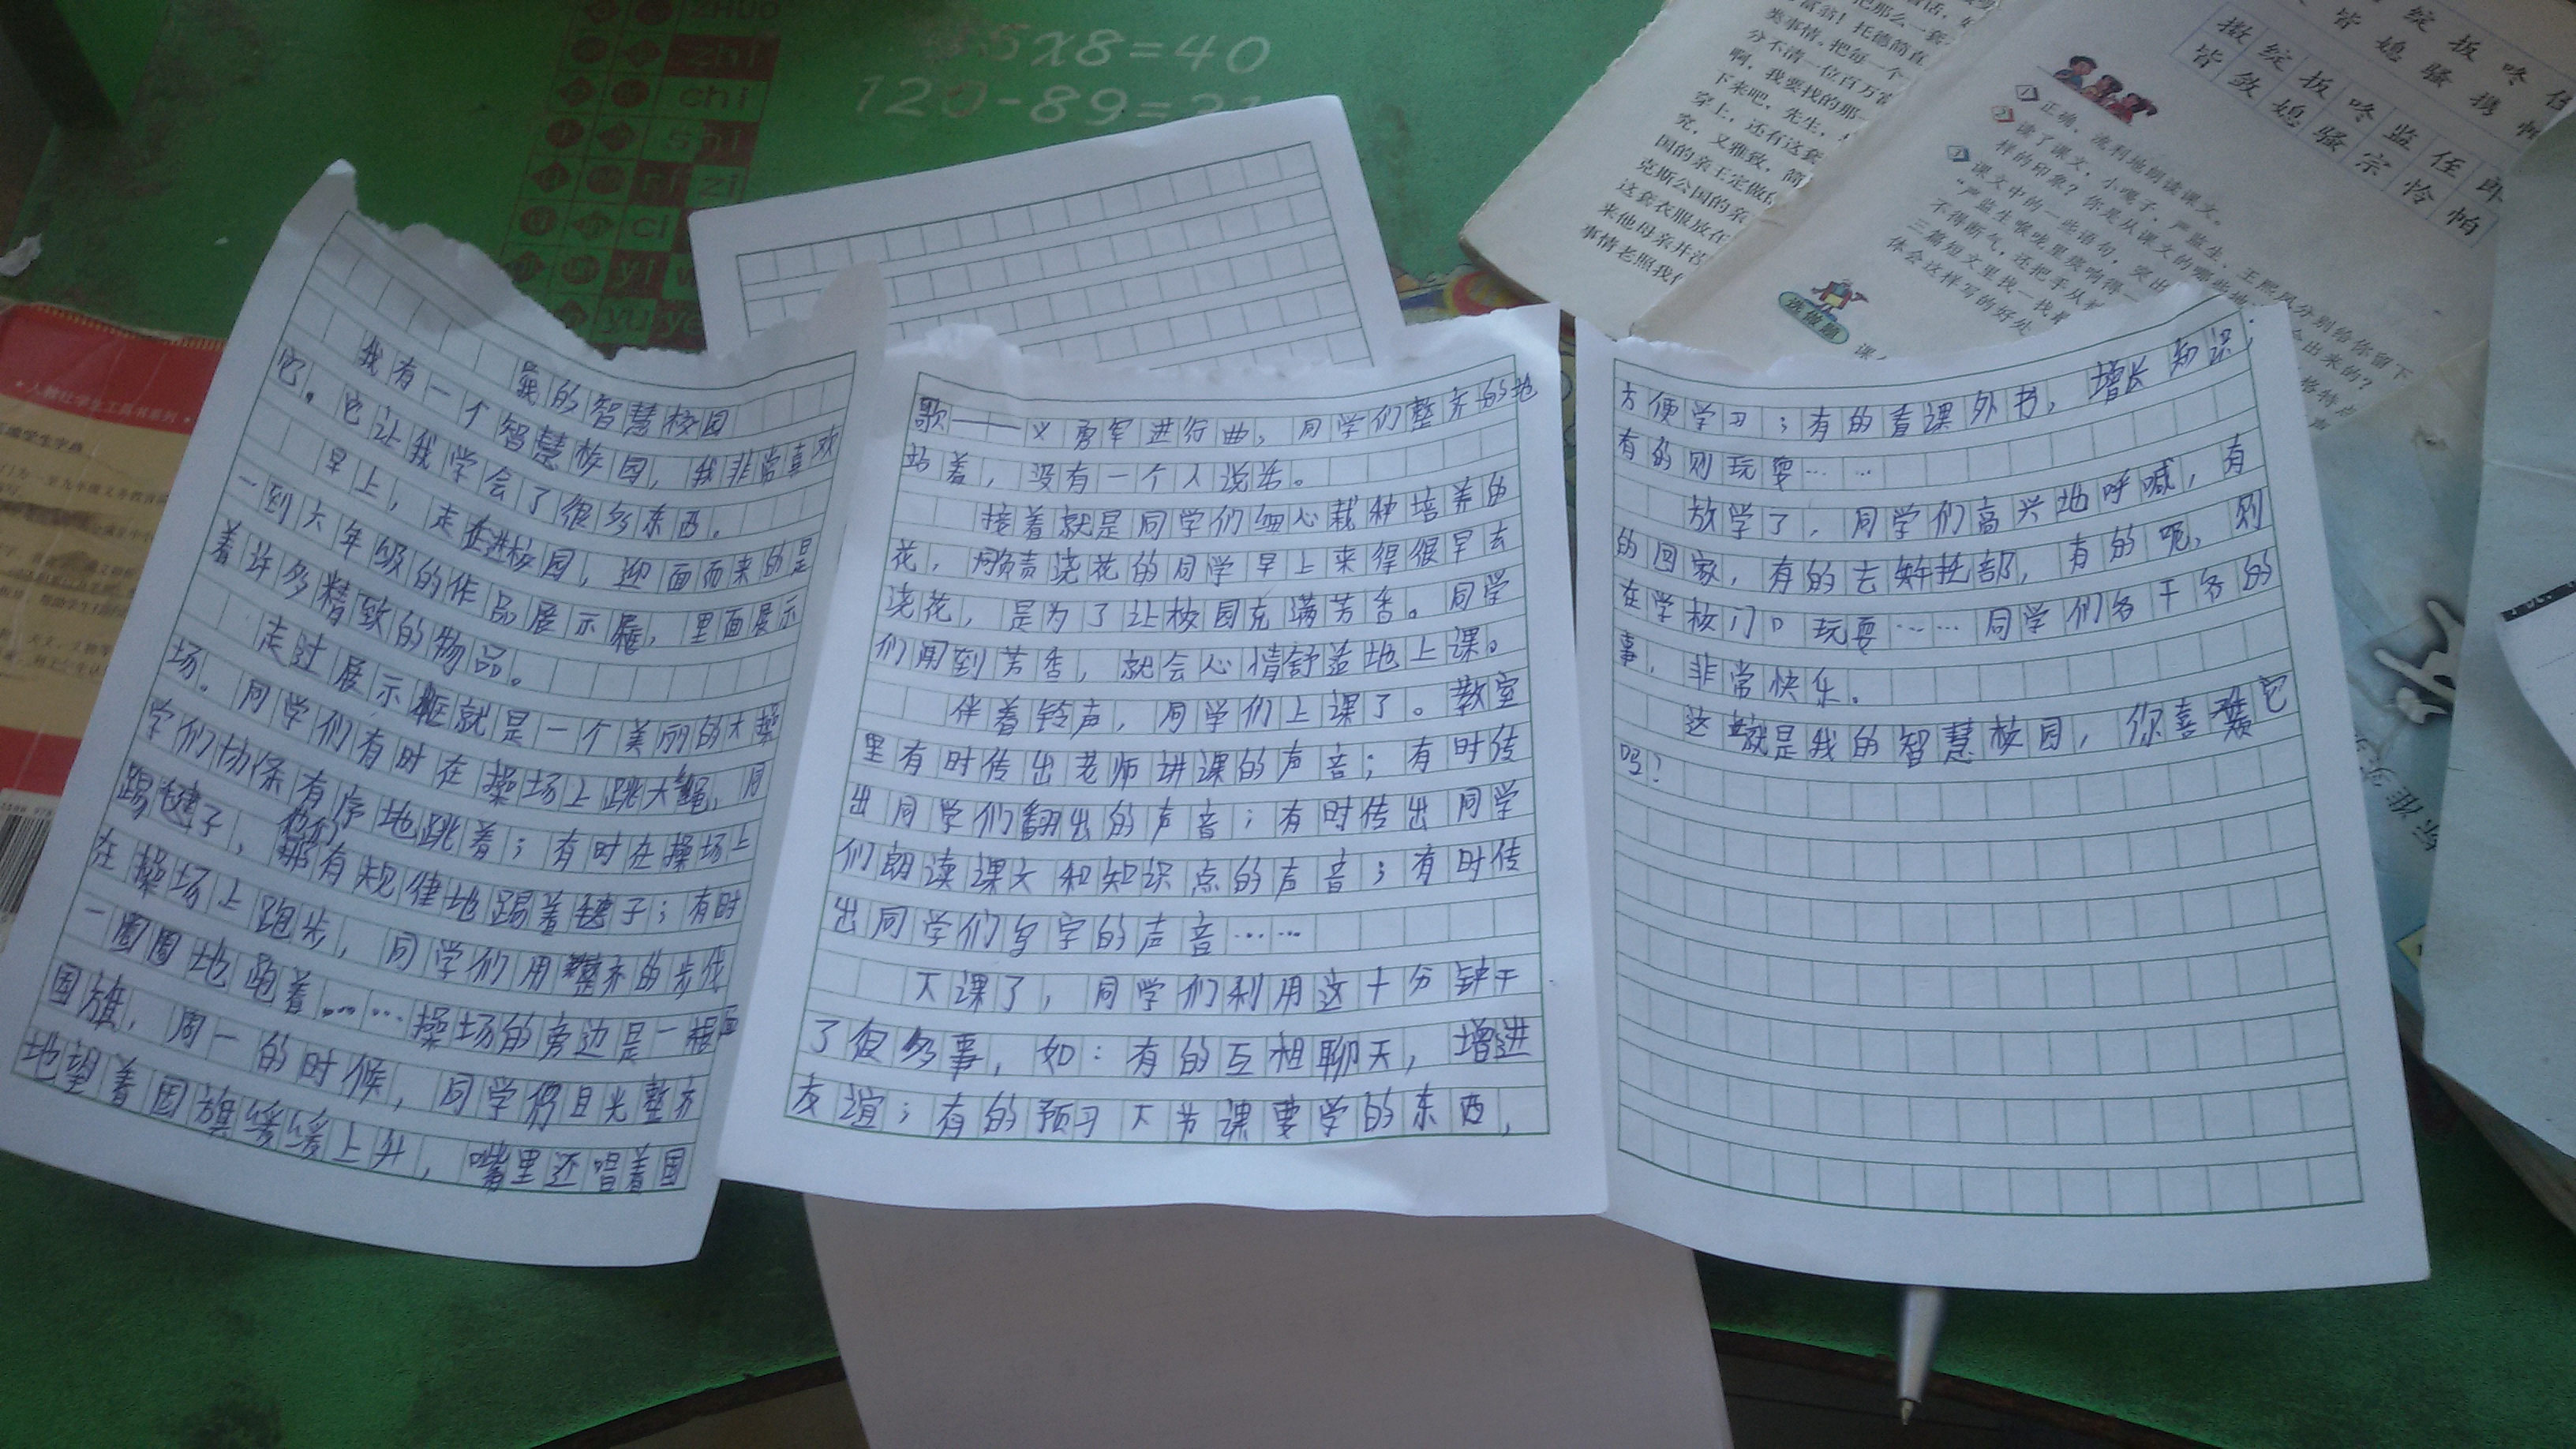 ZHUO
zhi
chi
zi
ci
yi
yu
5x8=40
120-89=31
我的智慧校园
我有一个智慧校园，我非常喜欢
它。它让我学会了很多东西。
早上，走进校园，迎面而来的是
一到六年级的作品展示框，里面展示
着许多精致的物品。
走过展示框就是一个美丽的大操
场。同学们有时在操场上跳大绳，同
学们协条有序地跳着；有时在操场上
踢毽子，他们有规律地踢着毽子；有时
在操场上跑步，同学们用整齐的步伐
一圈圈地跑着……操场的旁边是一根
国旗，周一的时候，同学们目光整齐
地望着国旗缓缓上升，嘴里还唱着国
歌——义勇军进行曲，同学们整齐的地
站着，没有一个人说话。
接着就是同学们细心栽种培养的
花，负责浇花的同学早上来得很早去
浇花，是为了让校园充满芳香。同学
们闻到芳香，就会心情舒益地上课。
伴着铃声，同学们上课了。教室
里有时传出老师讲课的声音；有时传
出同学们翻出的声音；有时传出同学
们朗读课文和知识点的声音；有时传
出同学们写字的声音……
下课了，同学们利用这十分钟干
了很多事，如：有的互相聊天，增进
友谊；有的预习下节课要学的东西，
方便学习；有的看课外书，增长知识；
有的则玩耍……
放学了，同学们高兴地呼喊，有
的回家，有的去午托部，有的呢，则
在学校门口玩耍……同学们各干各的
事，非常快乐。
这就是我的智慧校园，你喜欢它
吗？
类事情。把每一个
分不清一位百万富
啊，我要找的那一
下来吧，先生，
穿上，还有这套
究，又雅致，简
国的亲王定做的
克斯公国的亲
这套衣服放在
来他母亲并没
事情老照我们
绽 扳 咚
皆 媳 骚 携
撒 绽 扳 咚 监 侄 郎
皆 敛 媳 骚 宗 怜 帕
1 正确、流利地朗读课文。
2 读了课文，小嘎子、严监生、王熙凤分别给你留下
样的印象？你是从课文的哪些地
3 课文中的一些语句，突出
“严监生喉咙里痰响得一
不得断气，还把手从被
三篇短文里找一找
体会这样写的好处
选做题
·人教社学生工具书系列·